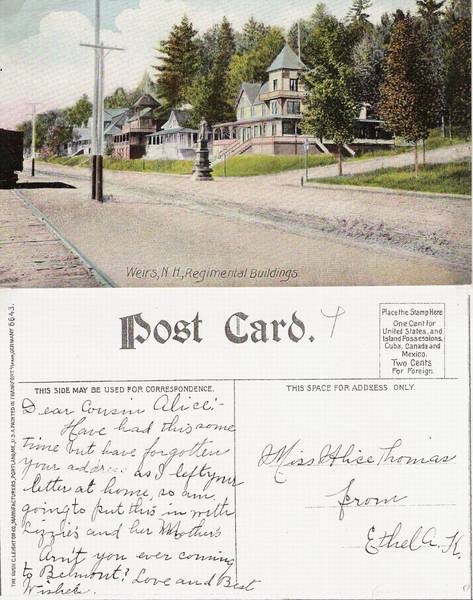 Weirs, N. H., Regimental Buildings.
Post Card.
Place the Stamp Here
One Cent for
United States, and
Island Possessions,
Cuba, Canada and
Mexico.
Two Cents
For Foreign.
THIS SIDE MAY BE USED FOR CORRESPONDENCE.
THIS SPACE FOR ADDRESS ONLY.
Dear Cousin Alice:-
Have had this some
time but have forgotten
your address as I left your
letter at home, so am
going to put this in with
Lizzie's and her Mothers
Arn't you ever coming
to Belmont? Love and Best
Wishes.
Miss Alice Thomas
from
Ethel A. K.
THE HUGH C. LEIGHTON CO., MANUFACTURERS, PORTLAND, ME., U.S.A. PRINTED IN FRANKFORT GERMANY 6643.